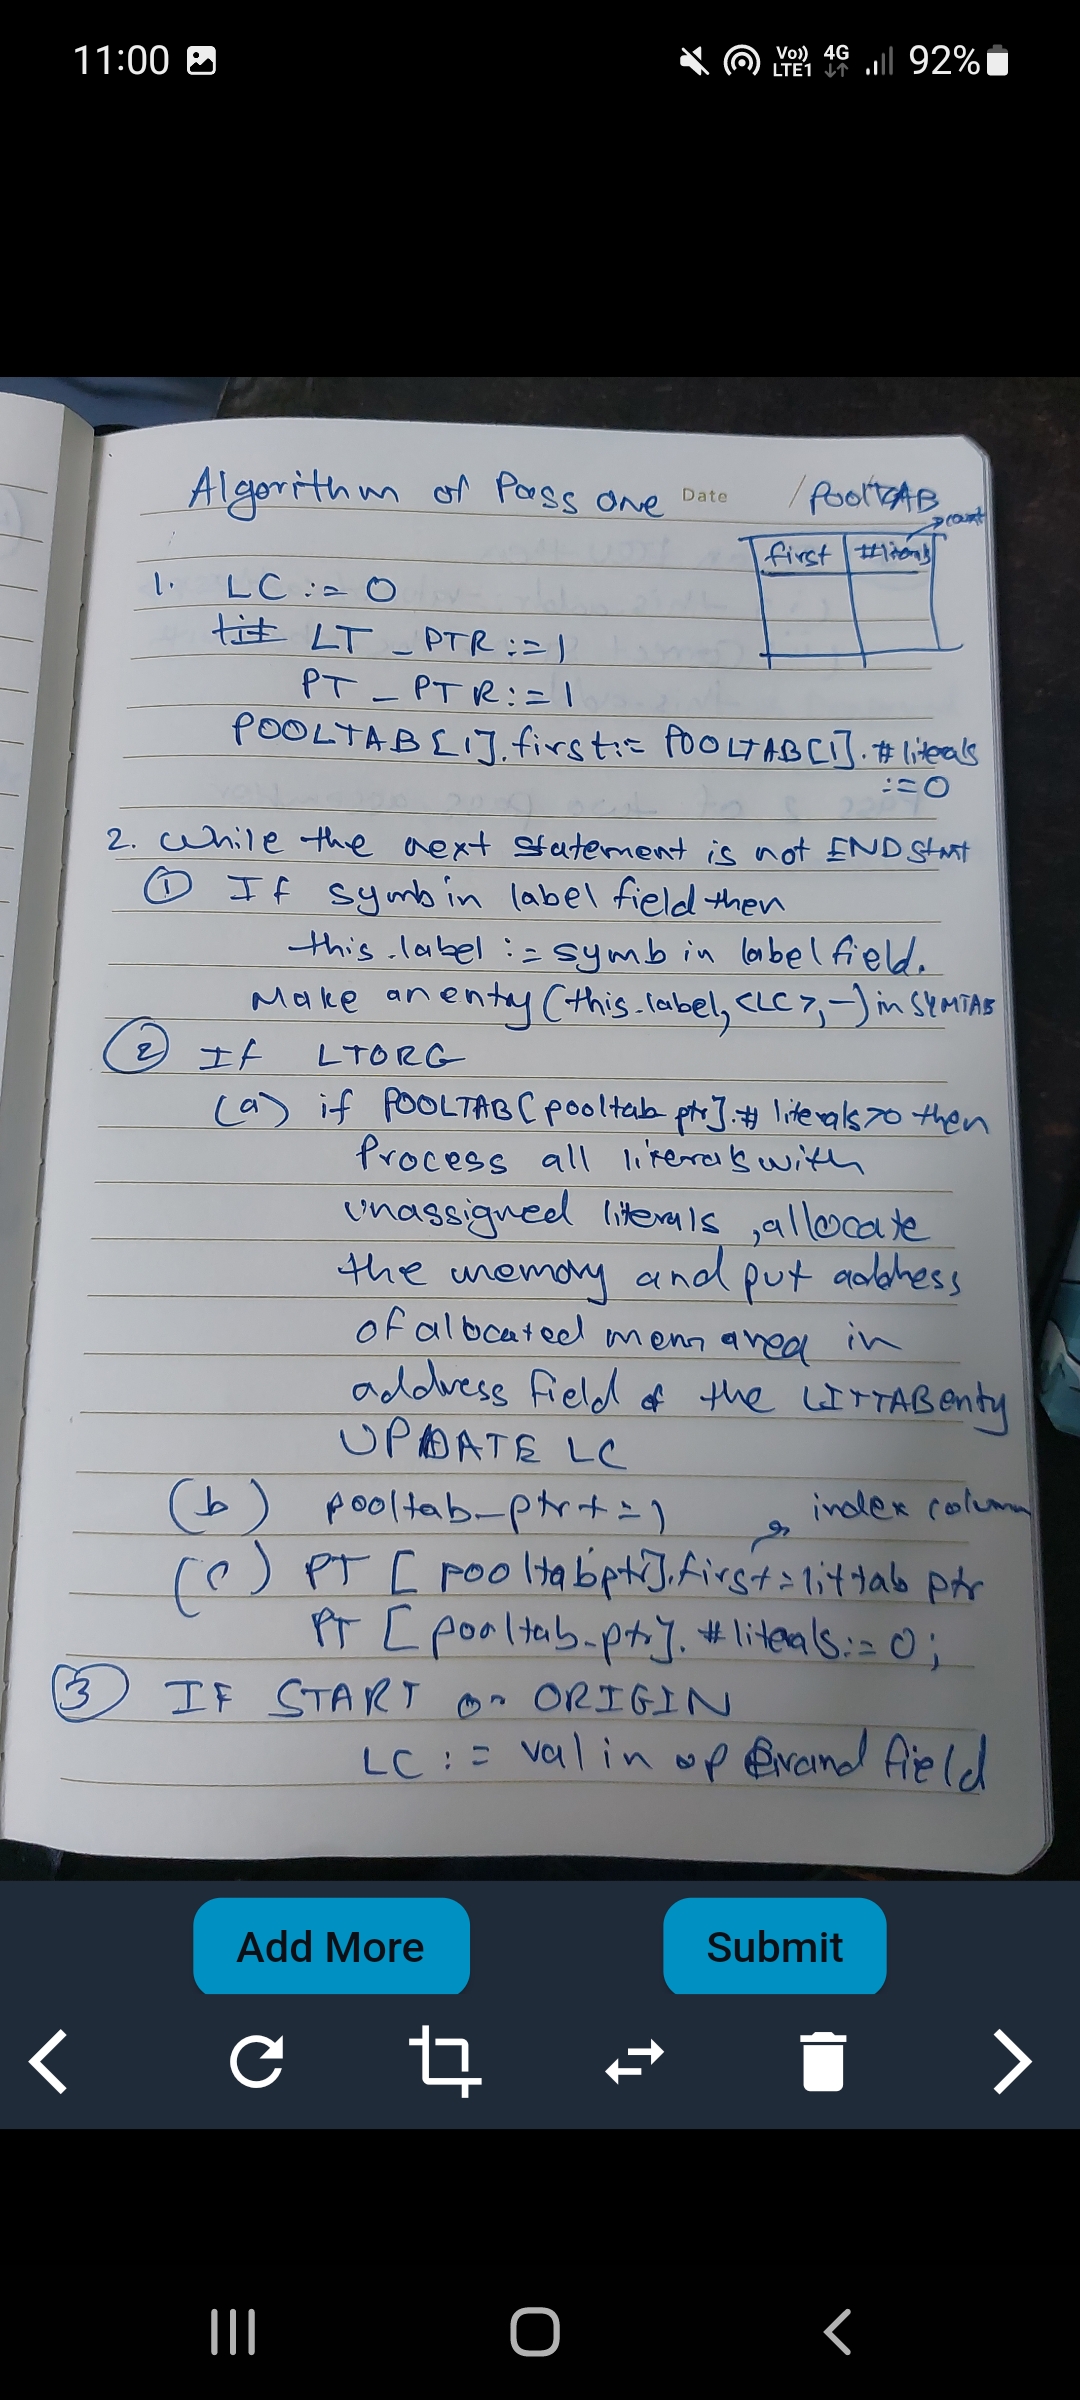 11:00
Vo)) LTE1 4G 92%
Algorithm of Pass one Date / POOLTAB
count
first #literals
1. LC := 0
LT_PTR := 1
PT_PTR := 1
POOLTAB[1].first := POOLTAB[1].#literals
:= 0
2. While the next statement is not END stmt
① If symb in label field then
this.label := symb in label field.
Make an enty (this.label, <LC>, —) in SYMTAB
② If LTORG
(a) if POOLTAB[pooltab ptr].# literals > 0 then
Process all literals with
unassigned literals, allocate
the memory and put address
of allocated mem area in
address field of the LITTAB enty
UPDATE LC
(b) pooltab_ptr += 1
index column
(c) PT [pooltab ptr].first = littab ptr
PT [pooltab_ptr].#literals := 0;
③ IF START or ORIGIN
LC := val in operand field
Add More
Submit